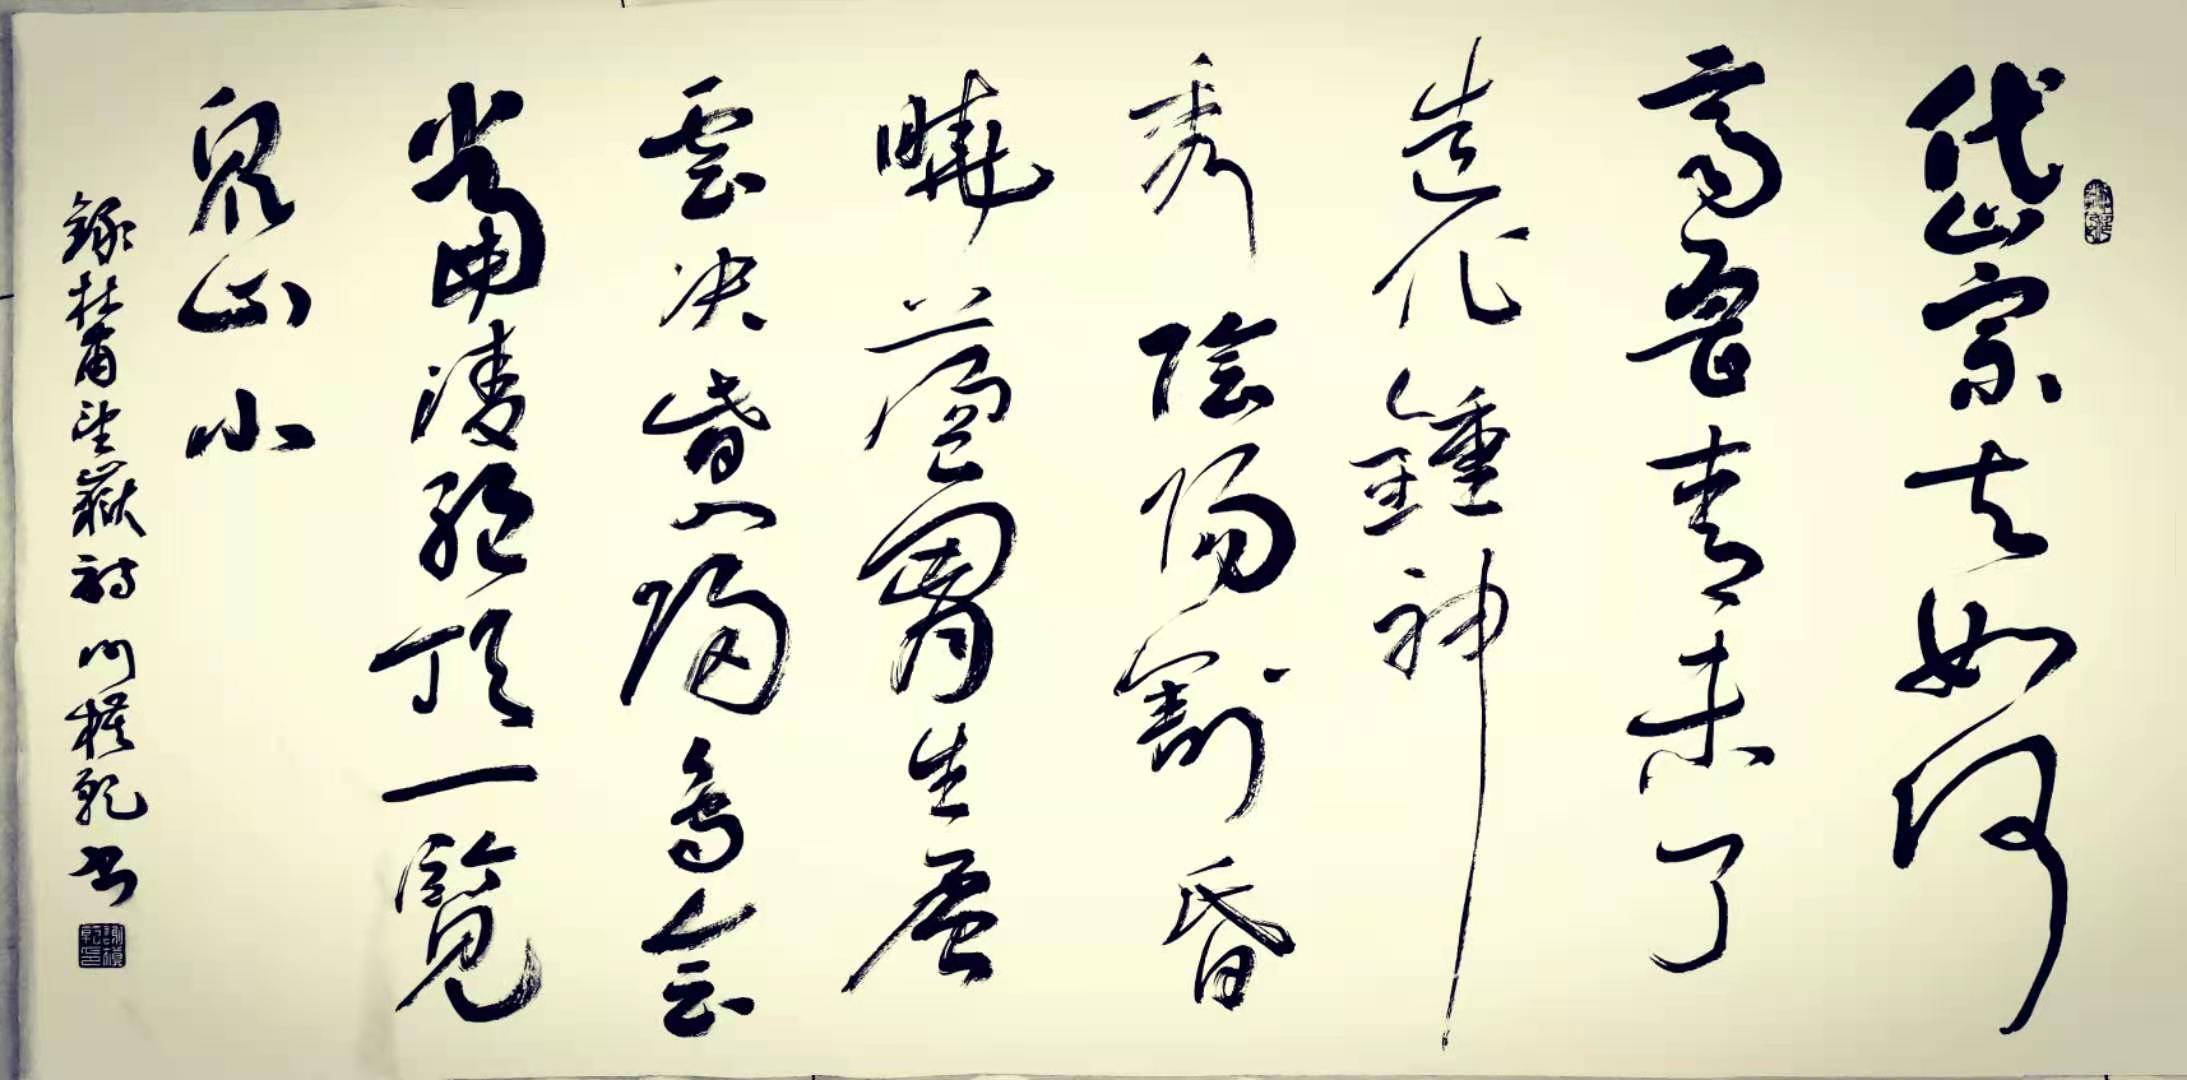 岱宗夫如何
齊魯青未了
造化鍾神
秀陰陽割昏
曉蕩胷生層
雲決眥入歸鳥會
當凌絕頂一覽
眾山小
錄杜甫望嶽詩 乾書